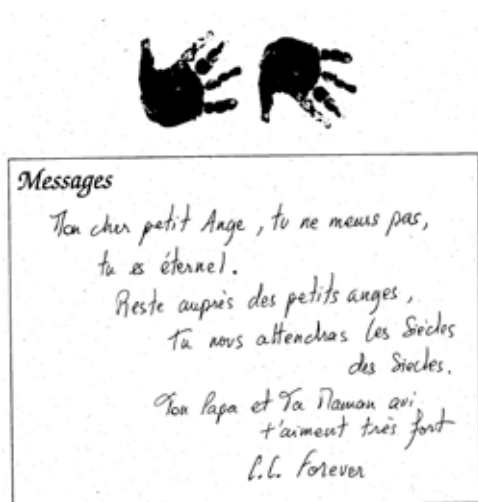 Messages
Mon cher petit Ange, tu ne meurs pas,
tu es éternel.
Reste auprès des petits anges,
Tu nous attendras les Siècles
des Siècles.
Ton Papa et Ta Maman qui
t'aiment très fort
C.C. Forever